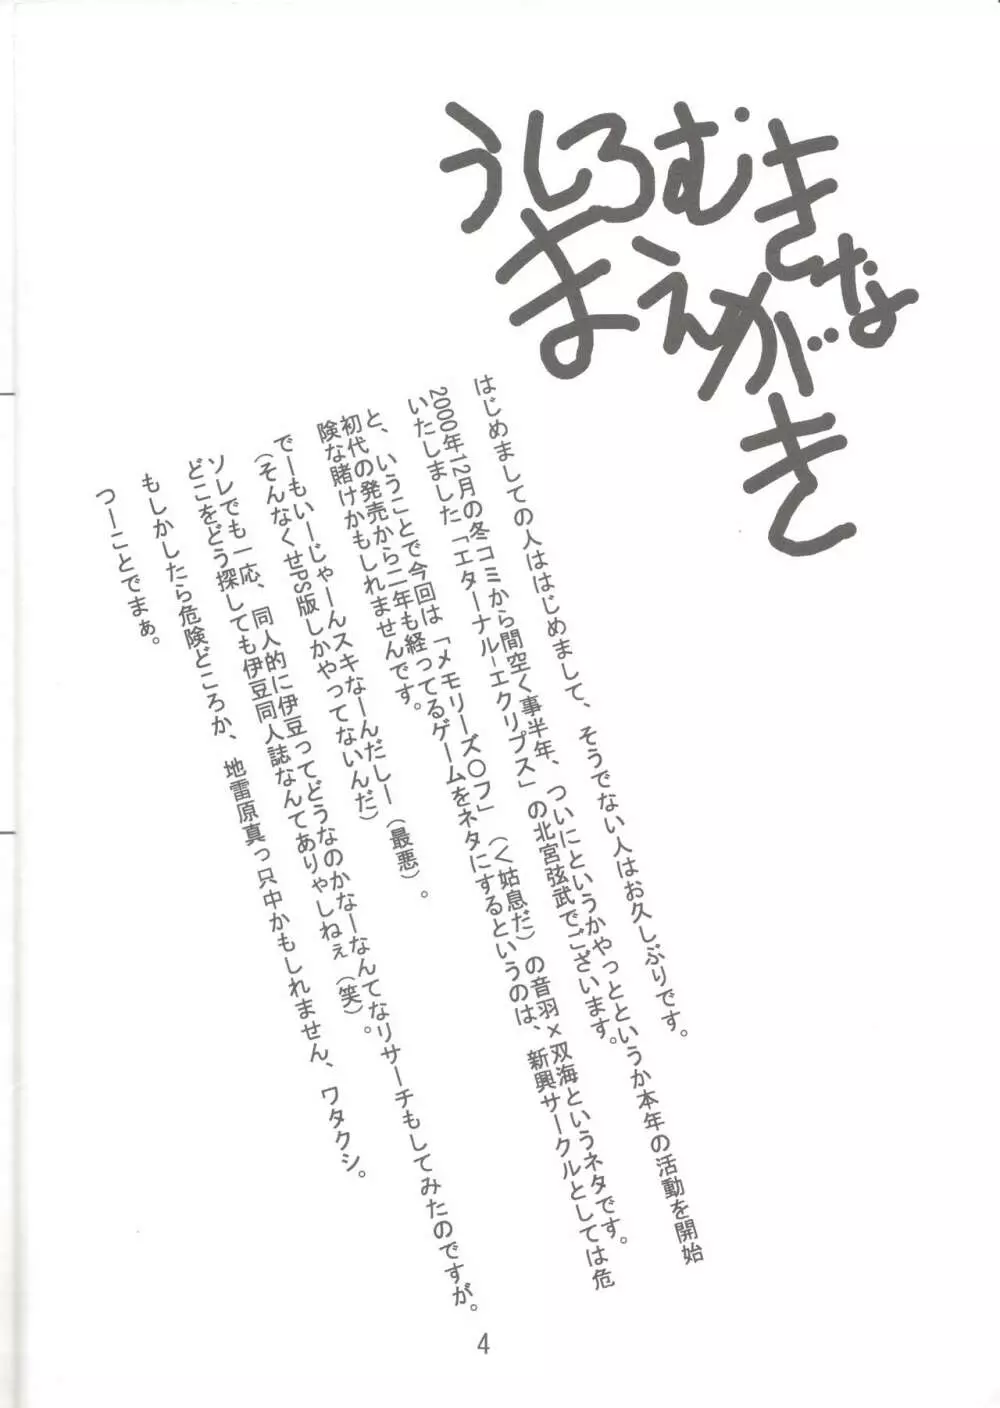 うしろむきな
まえがき
はじめましての人ははじめまして、そうでない人はお久しぶりです。
2000年12月の冬コミから間空く事半年、ついにというかやっとというか本年の活動を開始
いたしました「エターナル-エクリプス」の北宮弦武でございます。
と、いうことで今回は「メモリーズ○フ」（＜姑息だ）の音羽×双海というネタです。
初代の発売から二年も経ってるゲームをネタにするというのは、新興サークルとしては危
険な賭けかもしれませんです。
でーもいーじゃーんスキなーんだしー（最悪）。
（そんなくせPS版しかやってないんだ）
ソレでも一応、同人的に伊豆ってどうなのかなーなんてなリサーチもしてみたのですが。
どこをどう探しても伊豆同人誌なんてありゃしねぇ（笑）。
もしかしたら危険どころか、地雷原真っ只中かもしれません、ワタクシ。
つーことでまぁ。
4